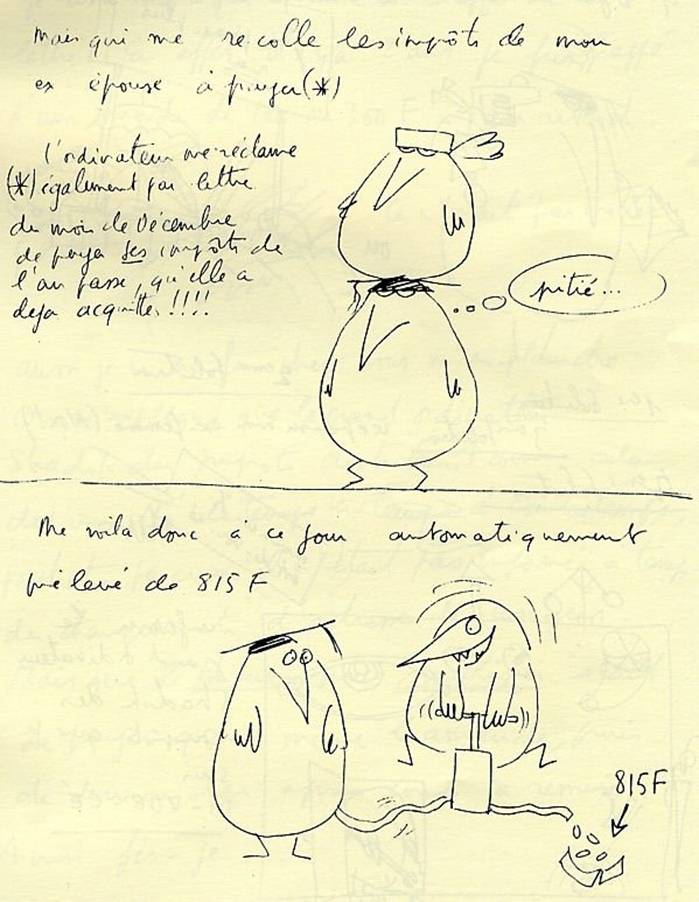 Mais qui me recolle les impôts de mon
ex épouse à payer (*)
l'ordinateur me réclame
(*) également par lettre
du mois de Décembre
de payer ses impôts de
l'an passé, qu'elle a
déjà acquittés !!!!
pitié...
Me voila donc à ce jour automatiquement
prélevé de 815 F
815F